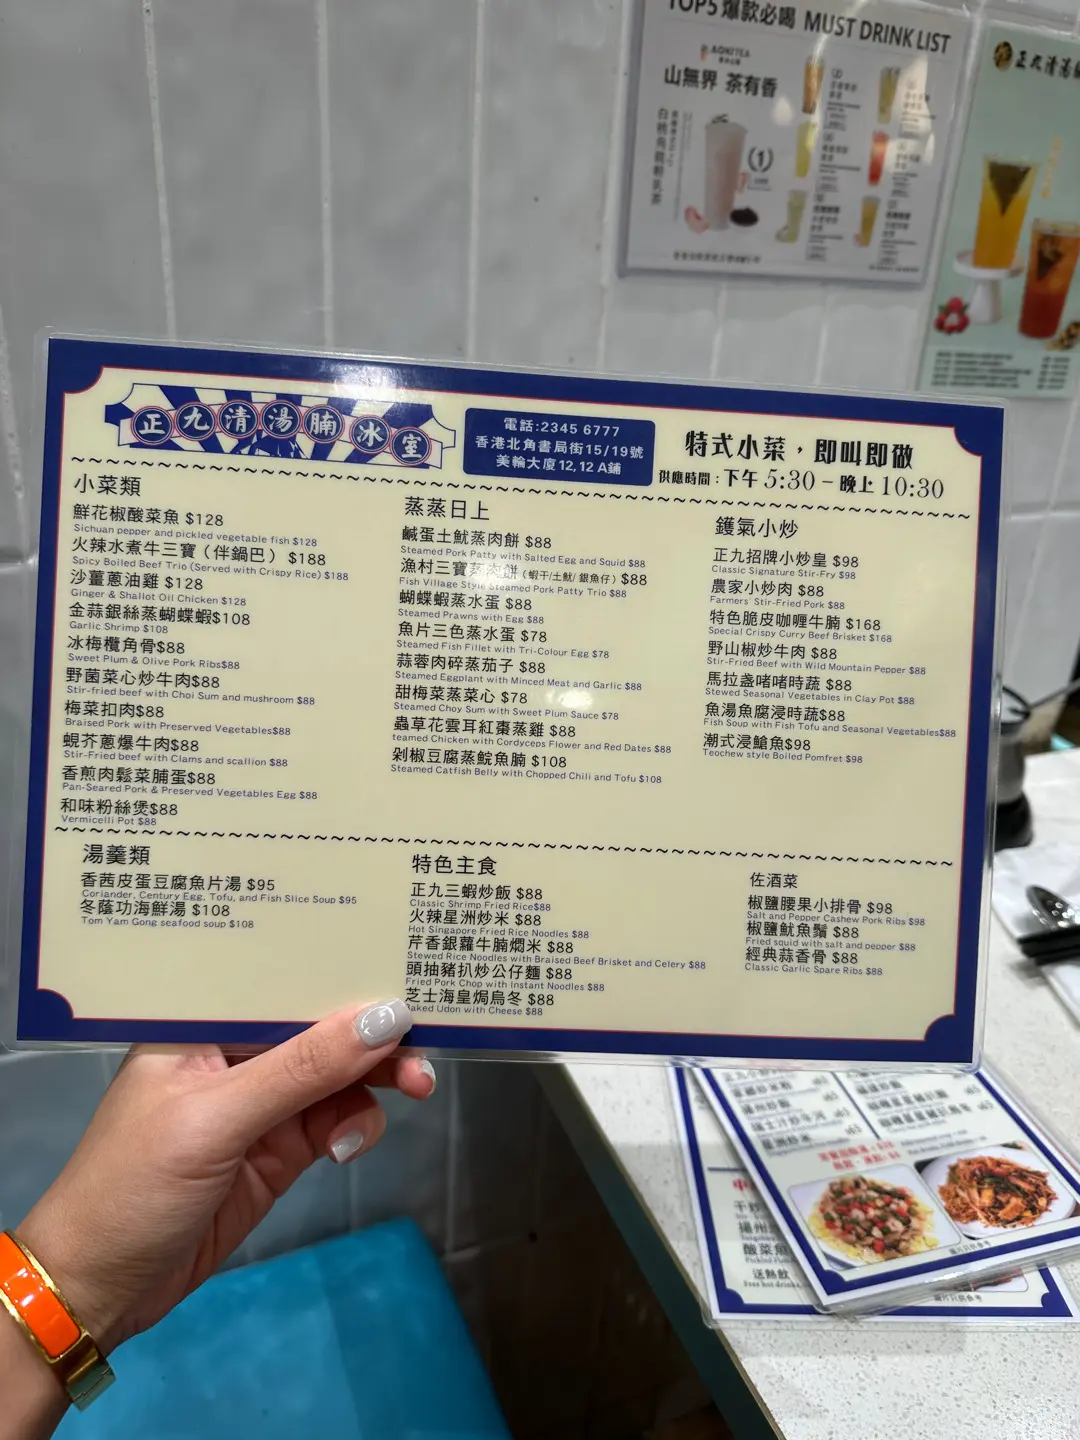 TOP5 爆款必喝 MUST DRINK LIST
AOKITEA
山無界 茶有香
(1)
正九清湯
正九清湯腩冰室
電話:2345 6777
香港北角書局街15/19號
美輪大廈12,12A鋪
特式小菜，即叫即做
供應時間：下午 5:30 – 晚上 10:30
小菜類
鮮花椒酸菜魚 $128
Sichuan pepper and pickled vegetable fish $128
火辣水煮牛三寶（伴鍋巴） $188
Spicy Boiled Beef Trio (Served with Crispy Rice) $188
沙薑蔥油雞 $128
Ginger & Shallot Oil Chicken $128
金蒜銀絲蒸蝴蝶蝦$108
Garlic Shrimp $108
冰梅欖角骨$88
Sweet Plum & Olive Pork Ribs$88
野菌菜心炒牛肉$88
Stir-fried beef with Choi Sum and mushroom $88
梅菜扣肉$88
Braised Pork with Preserved Vegetables$88
蜆芥蔥爆牛肉$88
Stir-Fried beef with Clams and scallion $88
香煎肉鬆菜脯蛋$88
Pan-Seared Pork & Preserved Vegetables Egg $88
和味粉絲煲$88
Vermicelli Pot $88
蒸蒸日上
鹹蛋土魷蒸肉餅 $88
Steamed Pork Patty with Salted Egg and Squid $88
漁村三寶蒸肉餅（蝦干/土魷/ 銀魚仔）$88
Fish Village Style Steamed Pork Patty Trio $88
蝴蝶蝦蒸水蛋 $88
Steamed Prawns with Egg $88
魚片三色蒸水蛋 $78
Steamed Fish Fillet with Tri-Colour Egg $78
蒜蓉肉碎蒸茄子 $88
Steamed Eggplant with Minced Meat and Garlic $88
甜梅菜蒸菜心 $78
Steamed Choy Sum with Sweet Plum Sauce $78
蟲草花雲耳紅棗蒸雞 $88
teamed Chicken with Cordyceps Flower and Red Dates $88
剁椒豆腐蒸鯇魚腩 $108
Steamed Catfish Belly with Chopped Chili and Tofu $108
鑊氣小炒
正九招牌小炒皇 $98
Classic Signature Stir-Fry $98
農家小炒肉 $88
Farmers' Stir-Fried Pork $88
特色脆皮咖喱牛腩 $168
Special Crispy Curry Beef Brisket $168
野山椒炒牛肉 $88
Stir-Fried Beef with Wild Mountain Pepper $88
馬拉盞啫啫時蔬 $88
Stewed Seasonal Vegetables in Clay Pot $88
魚湯魚腐浸時蔬$88
Fish Soup with Fish Tofu and Seasonal Vegetables$88
潮式浸鯧魚$98
Teochew style Boiled Pomfret $98
湯羹類
香茜皮蛋豆腐魚片湯 $95
Coriander, Century Egg, Tofu, and Fish Slice Soup $95
冬蔭功海鮮湯 $108
Tom Yam Gong seafood soup $108
特色主食
正九三蝦炒飯 $88
Classic Shrimp Fried Rice$88
火辣星洲炒米 $88
Hot Singapore Fried Rice Noodles $88
芹香銀蘿牛腩燜米 $88
Stewed Rice Noodles with Braised Beef Brisket and Celery $88
頭抽豬扒炒公仔麵 $88
Fried Pork Chop with Instant Noodles $88
芝士海皇焗烏冬 $88
aked Udon with Cheese $88
佐酒菜
椒鹽腰果小排骨 $98
Salt and Pepper Cashew Pork Ribs $98
椒鹽魷魚鬚 $88
Fried squid with salt and pepper $88
經典蒜香骨 $88
Classic Garlic Spare Ribs $88
酸菜魚
送熱飲
Free hot drinks